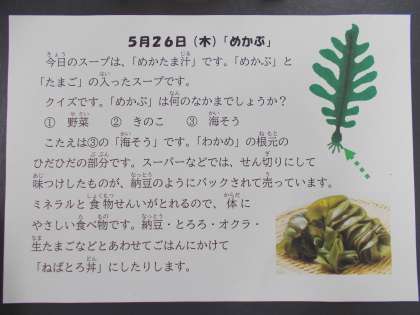 5月26日（木）「めかぶ」
今日のスープは、「めかたま汁」です。「めかぶ」と
「たまご」の入ったスープです。
クイズです。「めかぶ」は何のなかまでしょうか？
① 野菜　② きのこ　③ 海そう
こたえは③の「海そう」です。「わかめ」の根元の
ひだひだの部分です。スーパーなどでは、せん切りにして
味つけしたものが、納豆のようにパックされて売っています。
ミネラルと食物せんいがとれるので、体に
やさしい食べ物です。納豆・とろろ・オクラ・
生たまごなどとあわせてごはんにかけて
「ねばとろ丼」にしたりします。